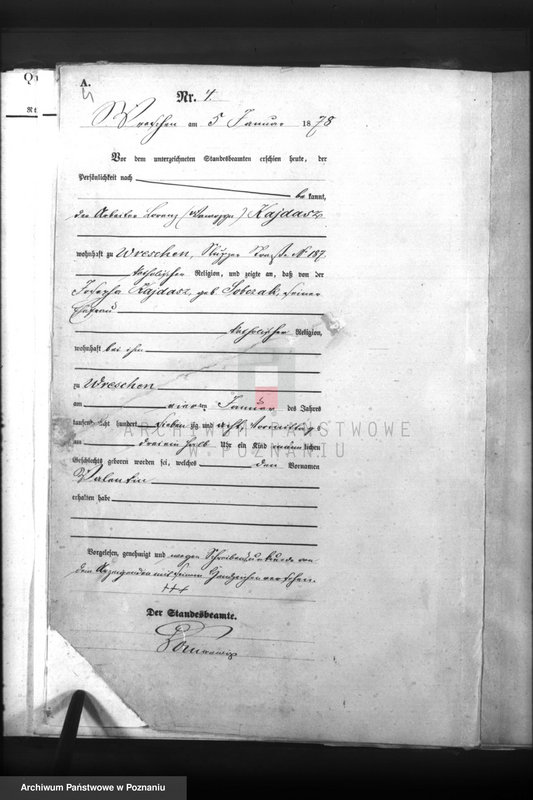 A.
Nr. 4.
Wreschen am 5 Januar 1878
Vor dem unterzeichneten Standesbeamten erschien heute, der
Persönlichkeit nach
be kannt,
der Arbeiter Lorenz (Wawrzyn) Kajdasz
wohnhaft zu Wreschen, Straße No 187
katholischer Religion, und zeigte an, daß von der
Josepha Kajdasz, geb Sobczak, seiner
Ehefrau
katholischer Religion,
wohnhaft bei ihm
zu Wreschen
am vierten Januar des Jahres
tausend acht hundert sieben zig und acht, Vormittags
um drei ein halb Uhr ein Kind männlichen
Geschlechts geboren worden sei, welches den Vornamen
Valentin
erhalten habe
Vorgelesen, genehmigt und wegen Schreibensunkunde von
dem Anzeigenden mit seinem Handzeichen versehen.
+++
Der Standesbeamte.
ARCHIWUM PAŃSTWOWE
W POZNANIU
Archiwum Państwowe w Poznaniu